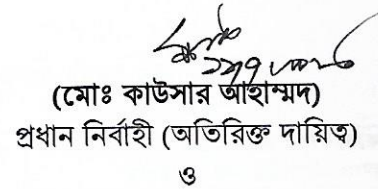 (মোঃ কাউসার আহাম্মদ)
প্রধান নির্বাহী (অতিরিক্ত দায়িত্ব)
ও